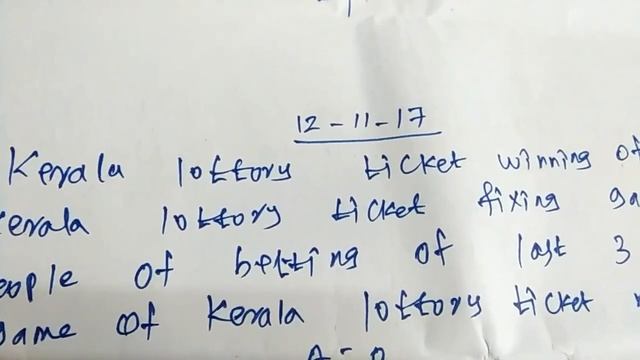 12-11-17
Kerala lottory ticket winning of
kerala lottory ticket fixing ga
eople of betting of last 3
game of Kerala lottory ticket
A = 0